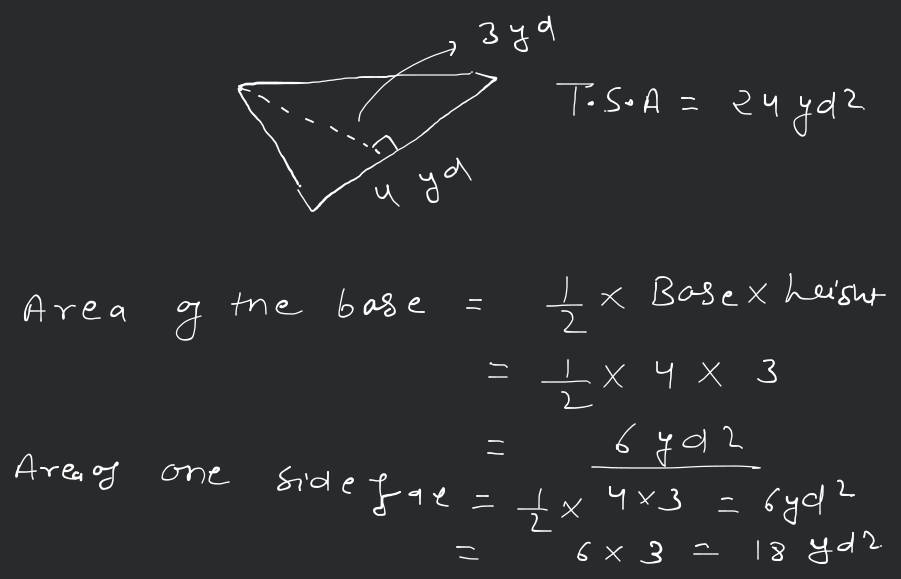 3 yd
T.S.A = 24 yd2
4 yd
Area of the base = 1/2 × Base × height
= 1/2 × 4 × 3
= 6 yd2
Area of one side face = 1/2 × 4×3 = 6yd2
= 6 × 3 = 18 yd2